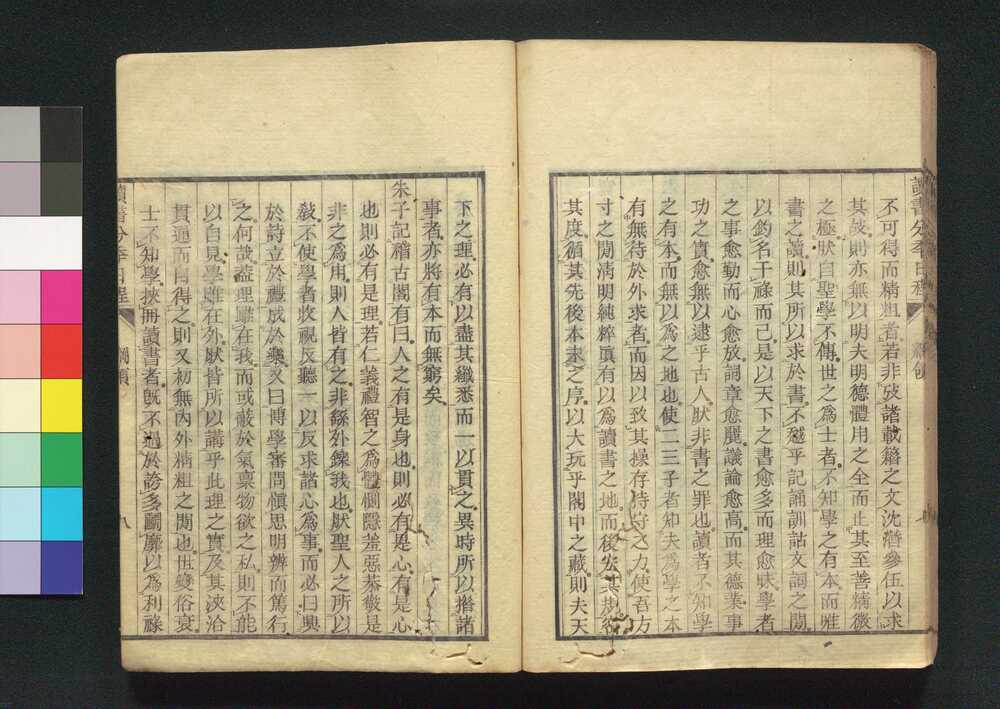 讀書分年日程 綱領
不可得而精粗者若非攷諸載籍之文沈潛參伍以求
其故則亦無以明夫明德體用之全而止其至善精微
之極狀自聖學不傳世之爲士者不知學之有本而唯
書之讀則其所以求於書不越乎記誦訓詁文詞之閒
以釣名干祿而已是以天下之書愈多而理愈昧學者
之事愈勤而心愈放詞章愈麗議論愈高而其德業事
功之實愈無以逮乎古人肰非書之罪也讀者不知學
之有本而無以爲之地也使二三子者知夫爲學之本
有無待於外求者而因以致其操存持守之力使吾方
寸之閒淸明純粹眞有以爲讀書之地而後宏其規密
其度循其先後本末之序以大玩乎閣中之藏則夫天
下之理必有以盡其纖悉而一以貫之異時所以措諸
事者亦將有本而無窮矣
朱子記稽古閣有曰人之有是身也則必有是心有是心
也則必有是理若仁義禮智之爲體惻隱羞惡恭敬是
非之爲用則人皆有之非繇外鑠我也肰聖人之所以
敎不使學者收視反聽一以反求諸心爲事而必曰興
於詩立於禮成於樂又曰博學審問愼思明辨而篤行
之何哉葢理雖在我而或蔽於氣稟物欲之私則不能
以自見學雖在外肰皆所以講乎此理之實及其浹洽
貫通而自得之則又初無內外精粗之閒也世變俗衰
士不知學挾冊讀書者旣不過於誇多鬬靡以爲利祿
讀書分年日程 綱領 八